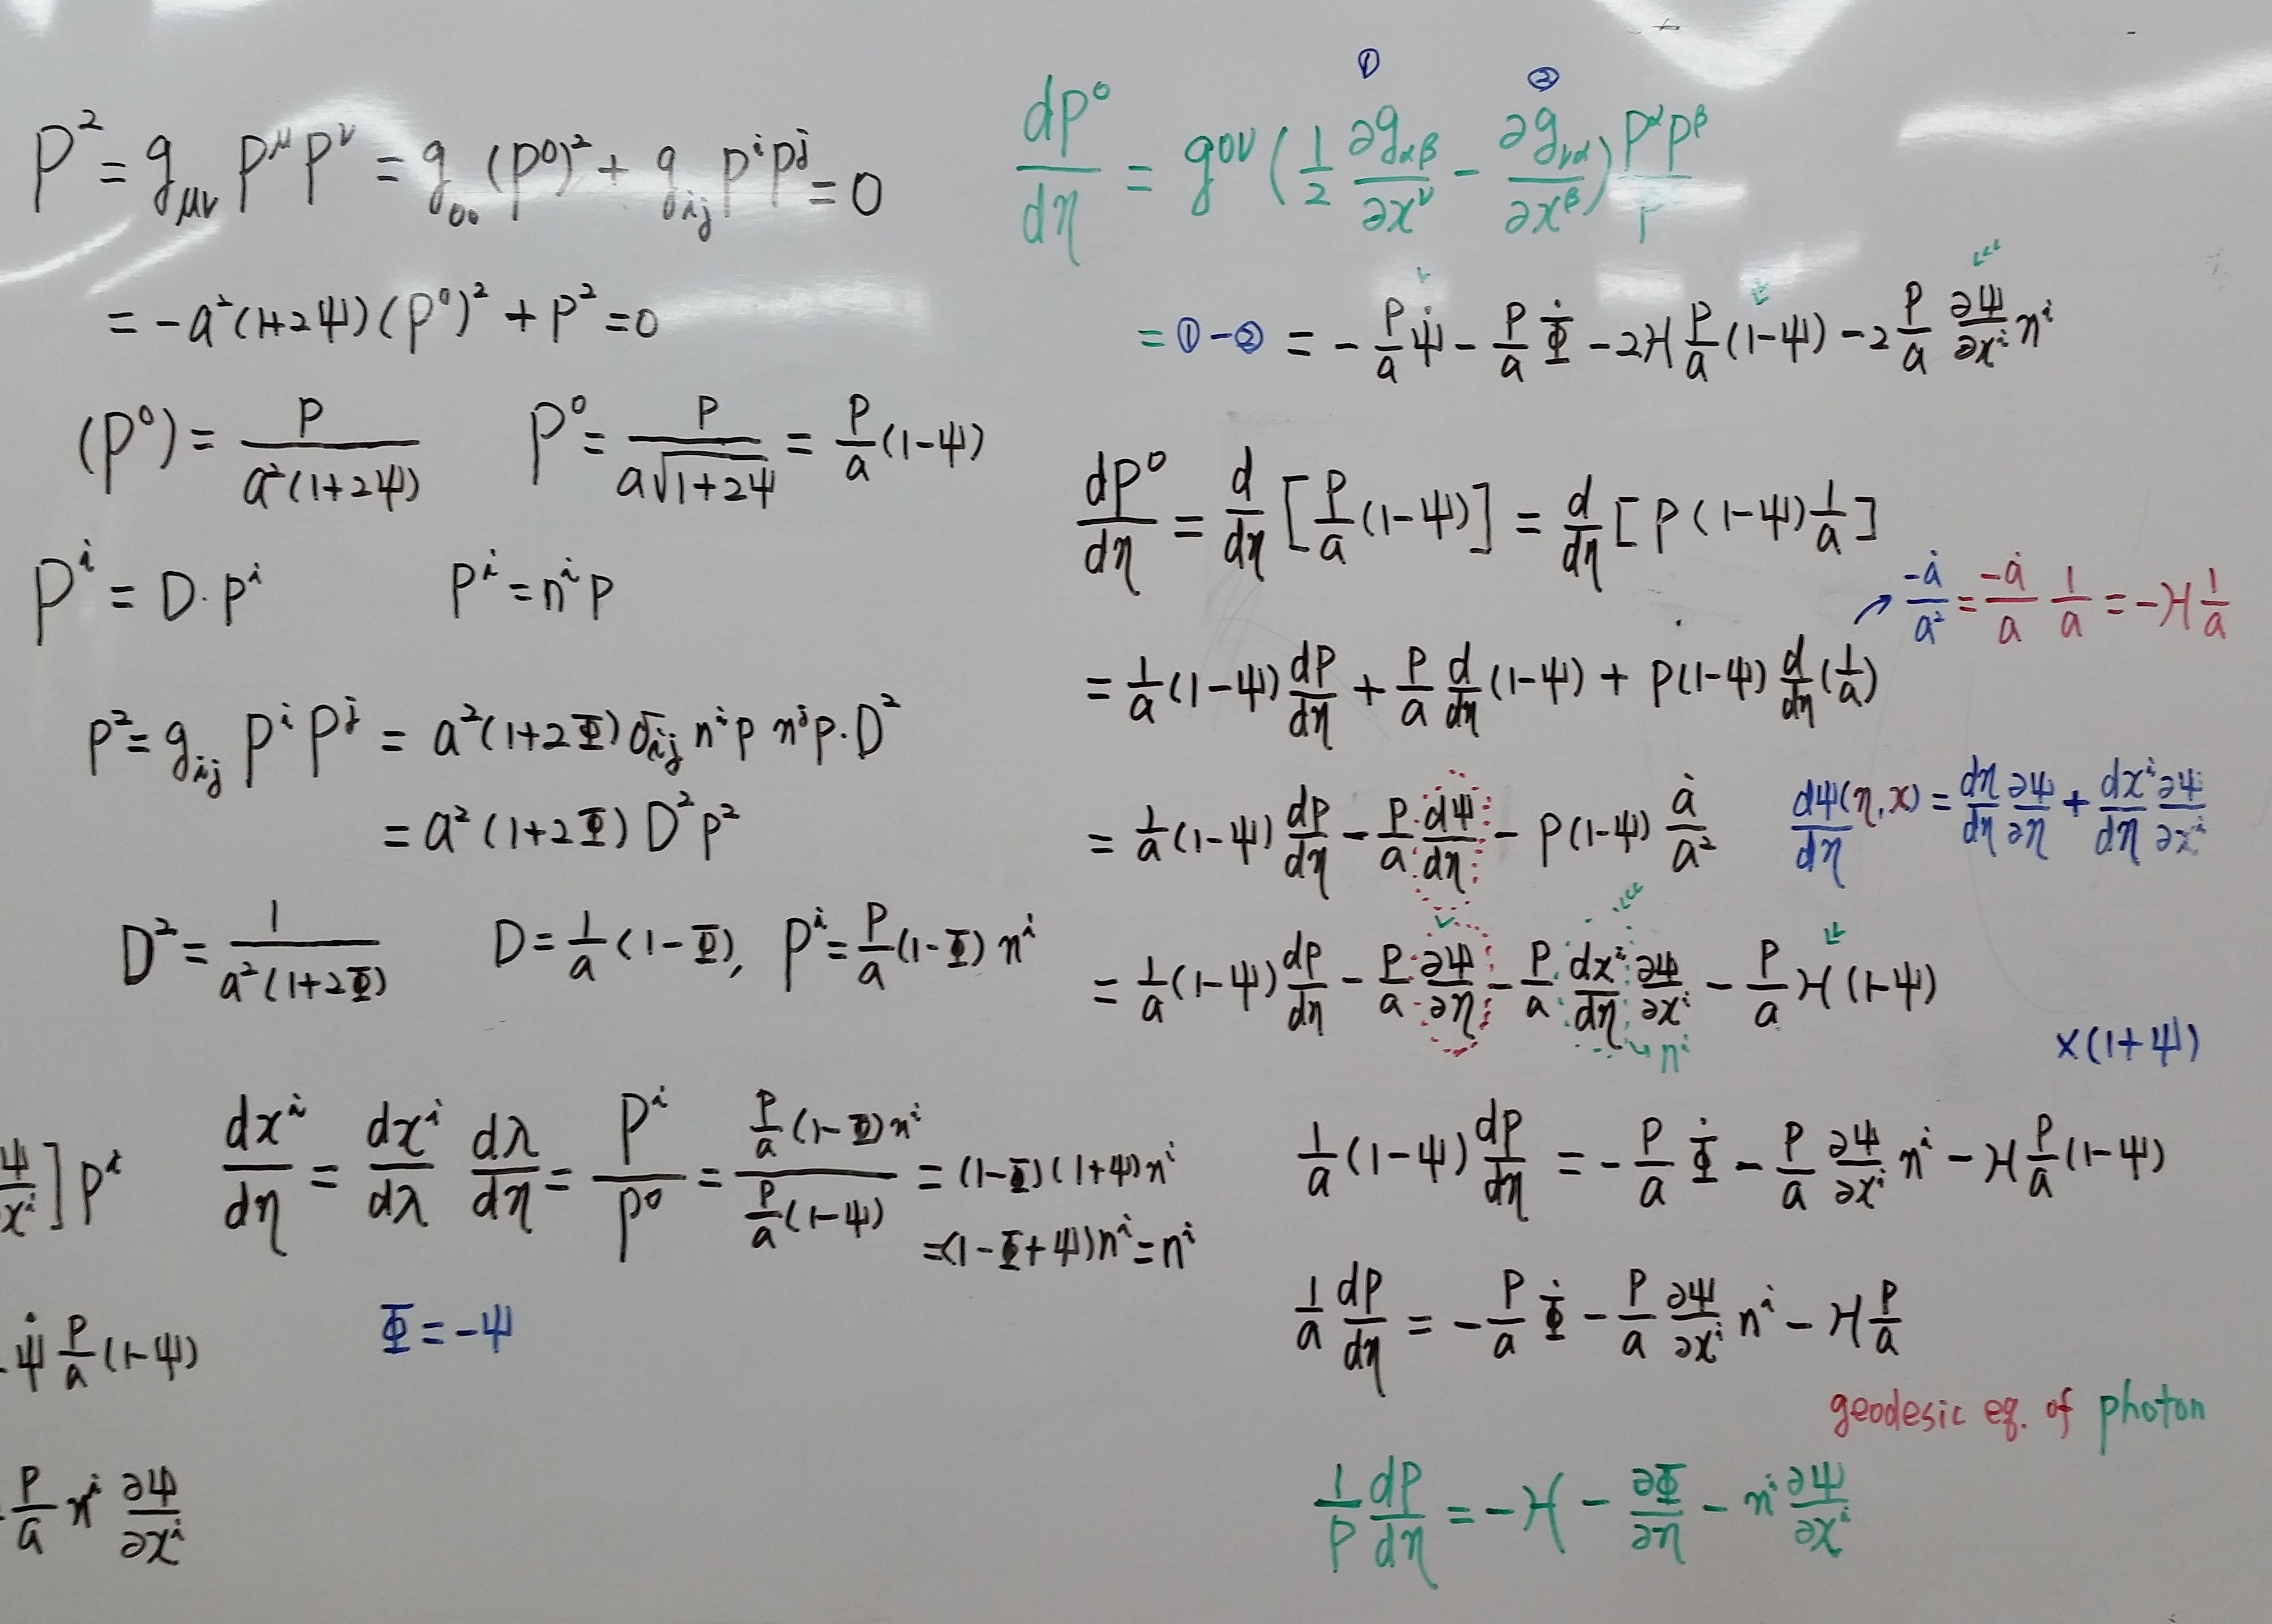 P² = g_μν P^μ P^ν = g_00 (P⁰)² + g_ij P^i P^j = 0
= -a²(1+2Ψ)(P⁰)² + P² = 0
(P⁰) = P / a²(1+2Ψ)    P⁰ = P / a√(1+2Ψ) = P/a (1-Ψ)
P^i = D · p^i    p^i = n^i p
p² = g_ij P^i P^j = a²(1+2Φ) δ_ij n^i p n^j p · D²
= a²(1+2Φ) D² p²
D² = 1 / a²(1+2Φ)    D = 1/a (1-Φ), P^i = P/a (1-Φ) n^i
Ψ/x^i ] p^i    dx^i/dη = dx^i/dλ dλ/dη = P^i/P⁰ = P/a (1-Φ) n^i / P/a (1-Ψ) = (1-Φ)(1+Ψ) n^i
= (1-Φ+Ψ) n^i = n^i
Ψ̇ P/a (1-Ψ)    Φ = -Ψ
P/a n^i ∂Ψ/∂x^i
① ②
dP⁰/dη = g^0ν (1/2 ∂g_αβ/∂x^ν - ∂g_να/∂x^β) P^α P^β / P
= ① - ② = - P/a Ψ̇ - P/a Φ̇ - 2H P/a (1-Ψ) - 2 P/a ∂Ψ/∂x^i n^i
dP⁰/dη = d/dη [P/a (1-Ψ)] = d/dη [P (1-Ψ) 1/a]
-ȧ/a² = -ȧ/a 1/a = -H 1/a
= 1/a (1-Ψ) dP/dη + P/a d/dη (1-Ψ) + P(1-Ψ) d/dη (1/a)
= 1/a (1-Ψ) dP/dη - P/a dΨ/dη - P(1-Ψ) ȧ/a²    dΨ(η,x)/dη = dη/dη ∂Ψ/∂η + dx^i/dη ∂Ψ/∂x^i
= 1/a (1-Ψ) dP/dη - P/a ∂Ψ/∂η - P/a dx^i/dη ∂Ψ/∂x^i - P/a H (1-Ψ)
→ n^i    ×(1+Ψ)
1/a (1-Ψ) dP/dη = - P/a Φ̇ - P/a ∂Ψ/∂x^i n^i - H P/a (1-Ψ)
1/a dP/dη = - P/a Φ̇ - P/a ∂Ψ/∂x^i n^i - H P/a
geodesic eq. of photon
1/P dP/dη = -H - ∂Φ/∂η - n^i ∂Ψ/∂x^i